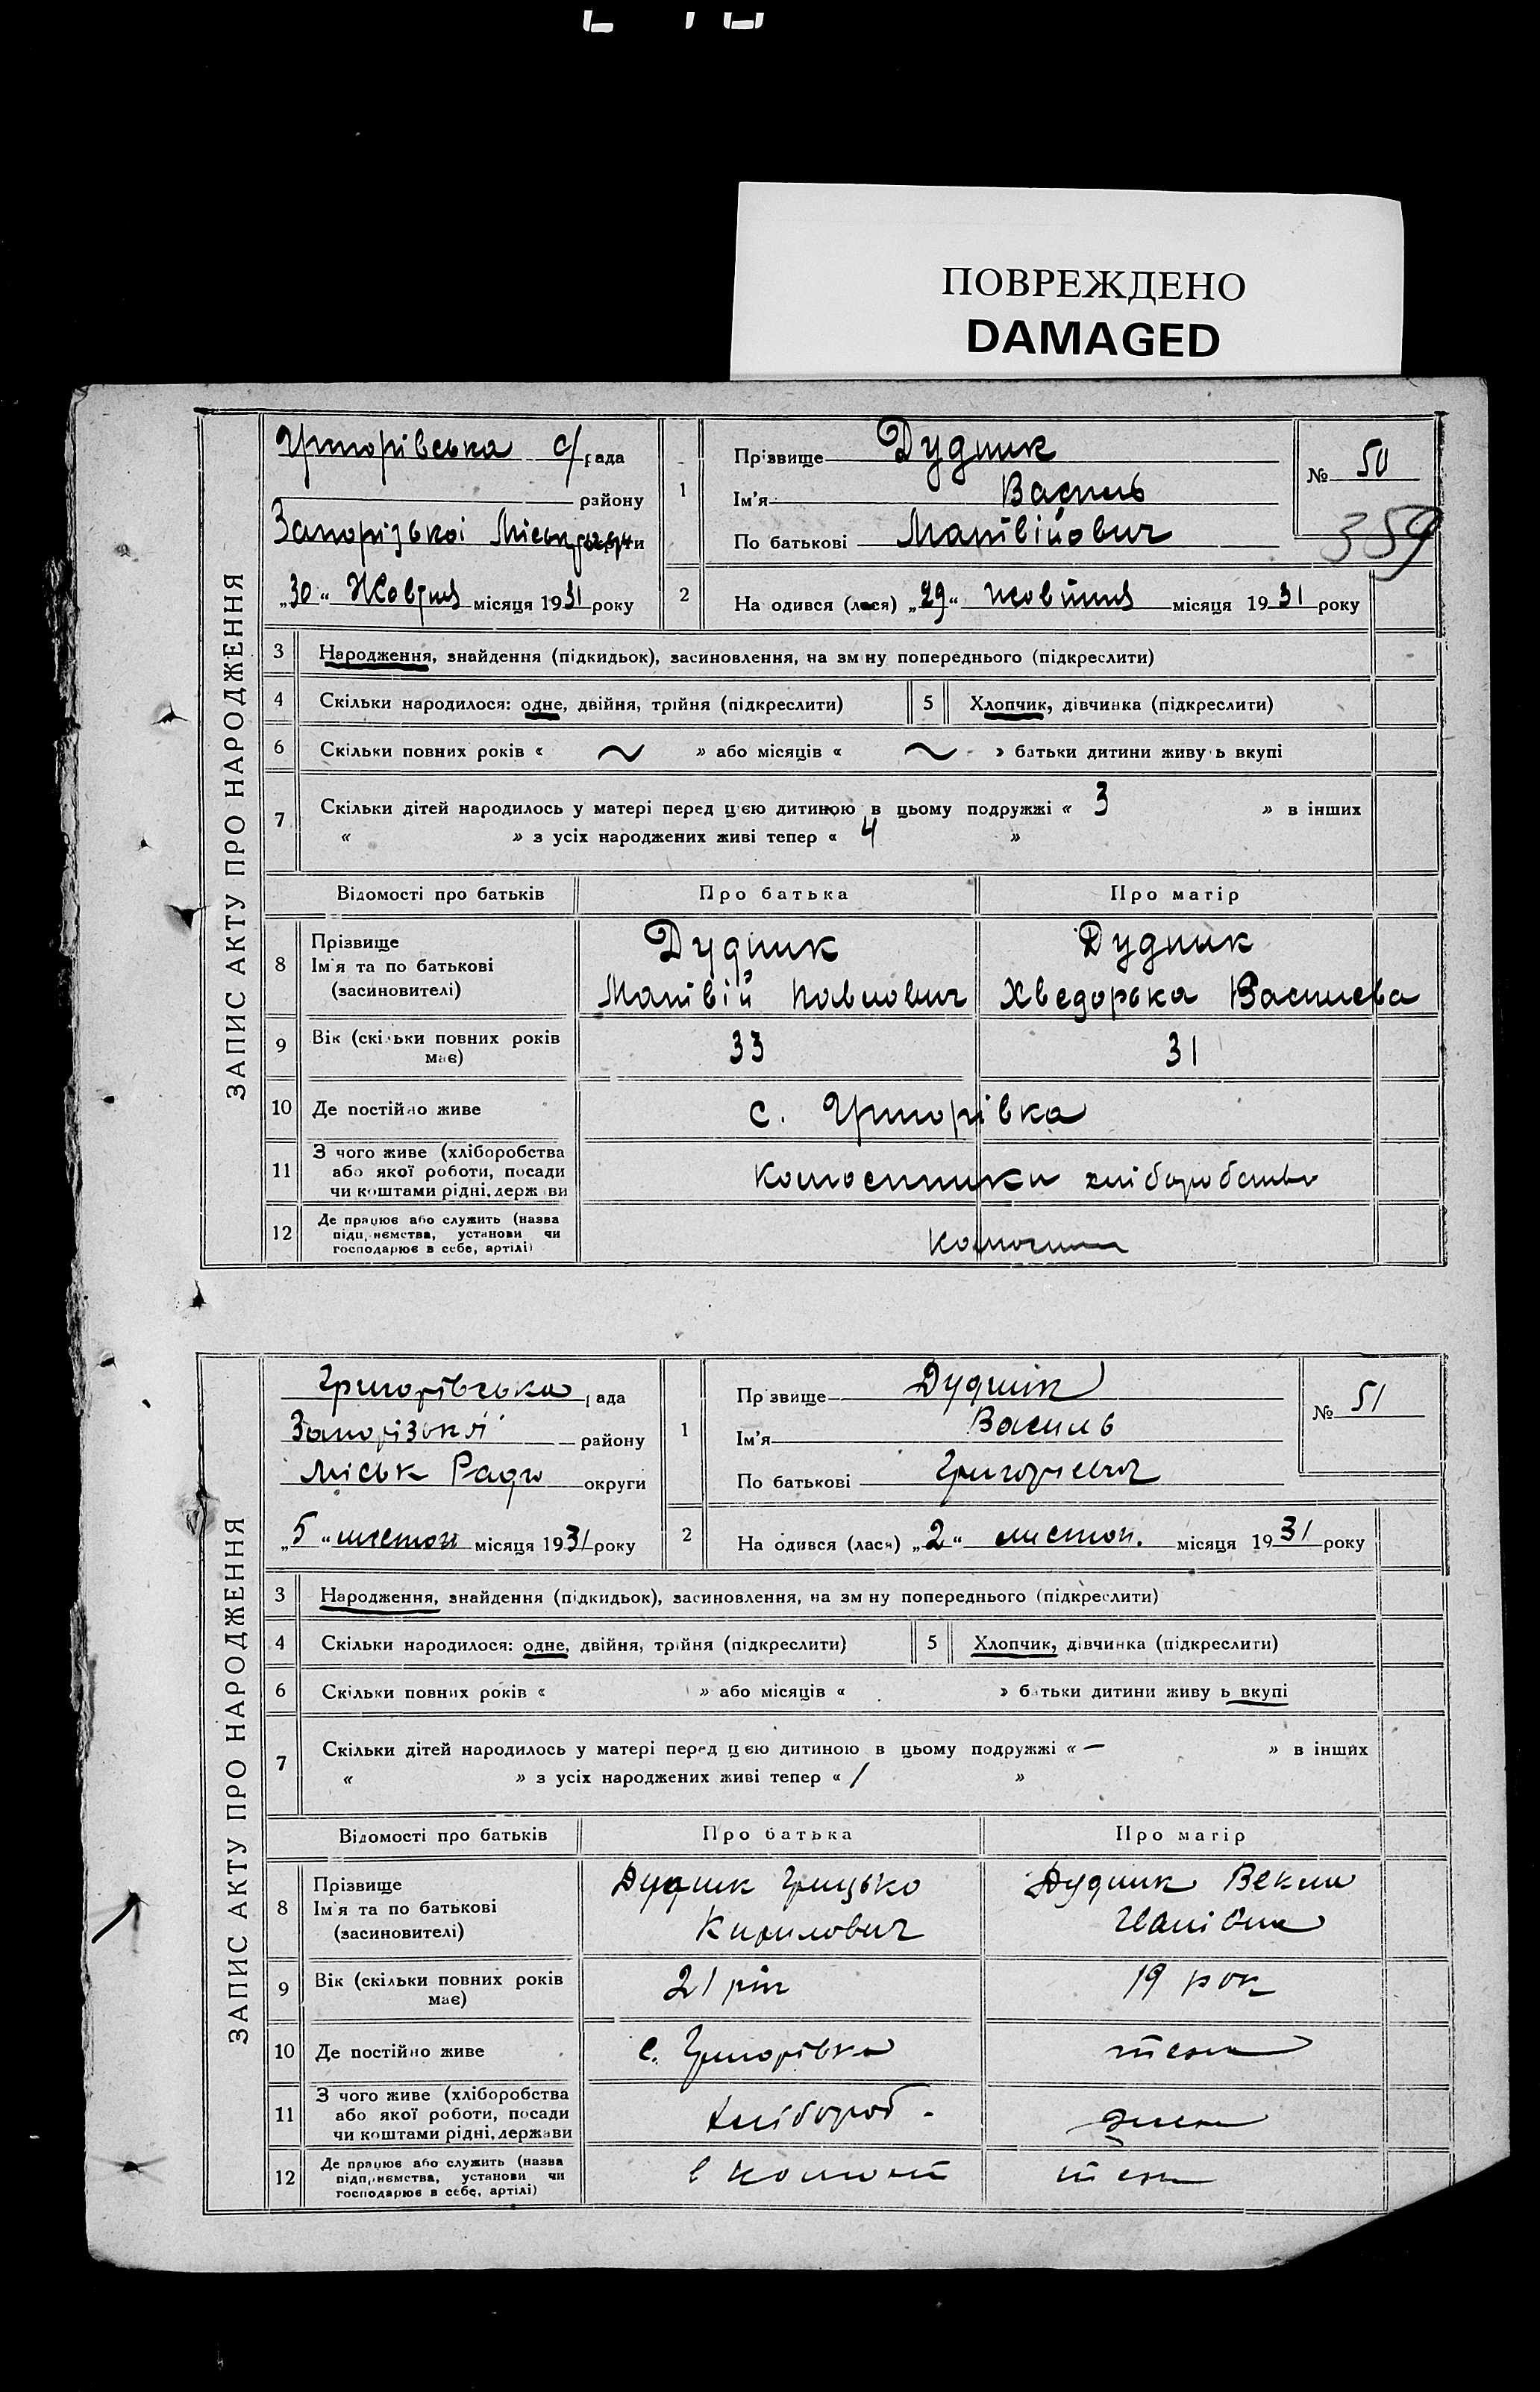 ПОВРЕЖДЕНО
DAMAGED
ЗАПИС АКТУ ПРО НАРОДЖЕННЯ
Григорівська с/рада
району
Запорізької Міськради
„30“ Жовтня місяця 1931 року
1
Прізвище Дудник
Ім'я Василь
По батькові Матвійович
№ 50
359
2
На одився (лася) „29“ жовтня місяця 1931 року
3 Народження, знайдення (підкидьок), засиновлення, на зм ну попереднього (підкреслити)
4 Скільки народилося: одне, двійня, трійня (підкреслити) 5 Хлопчик, дівчинка (підкреслити)
6 Скільки повних років « ~ » або місяців « ~ » батьки дитини живу ь вкупі
7 Скільки дітей народилось у матері перед цією дитиною в цьому подружжі « 3 » в інших
« » з усіх народжених живі тепер « 4 »
Відомості про батьків Про батька Про матір
8 Прізвище Ім'я та по батькові (засиновителі)
Дудник Матвій Павлович
Дудник Хведорька Василева
9 Вік (скільки повних років має) 33 31
10 Де постійно живе с. Григорівка
11 З чого живе (хліборобства або якої роботи, посади чи коштами рідні, держ ви
колоспники хліборобство
12 Де працює або служить (назва підп, иємства, установи чи господарює в себе, артілі)
ЗАПИС АКТУ ПРО НАРОДЖЕННЯ
Григорівська рада
Запорізької району
Міськ Ради округи
„5“ листоп місяця 1931 року
1
Пр звище Дудник
Ім'я Василь
По батькові Григорієвич
№ 51
2
На одився (лася) „2“ листоп. місяця 1931 року
3 Народження, знайдення (підкидьок), засиновлення, на зм ну попереднього (підкреслити)
4 Скільки народилося: одне, двійня, трійня (підкреслити) 5 Хлопчик, дівчинка (підкреслити)
6 Скільки повних років « » або місяців « » батьки дитини живу ь вкупі
7 Скільки дітей народилось у матері перед цією дитиною в цьому подружжі « — » в інших
« » з усіх народжених живі тепер « 1 »
Відомості про батьків Про батька Про матір
8 Прізвище Ім'я та по батькові (засиновителі)
Дудник Грицько Кирилович
Дудник Векла Іванівна
9 Вік (скільки повних років має) 21 рік 19 рок
10 Де постійно живе с. Григорівка
11 З чого живе (хліборобства або якої роботи, посади чи коштами рідні, держави
хлібороб.
12 Де працює або служить (назва підп, иємства, установи чи господарює в себе, артілі)